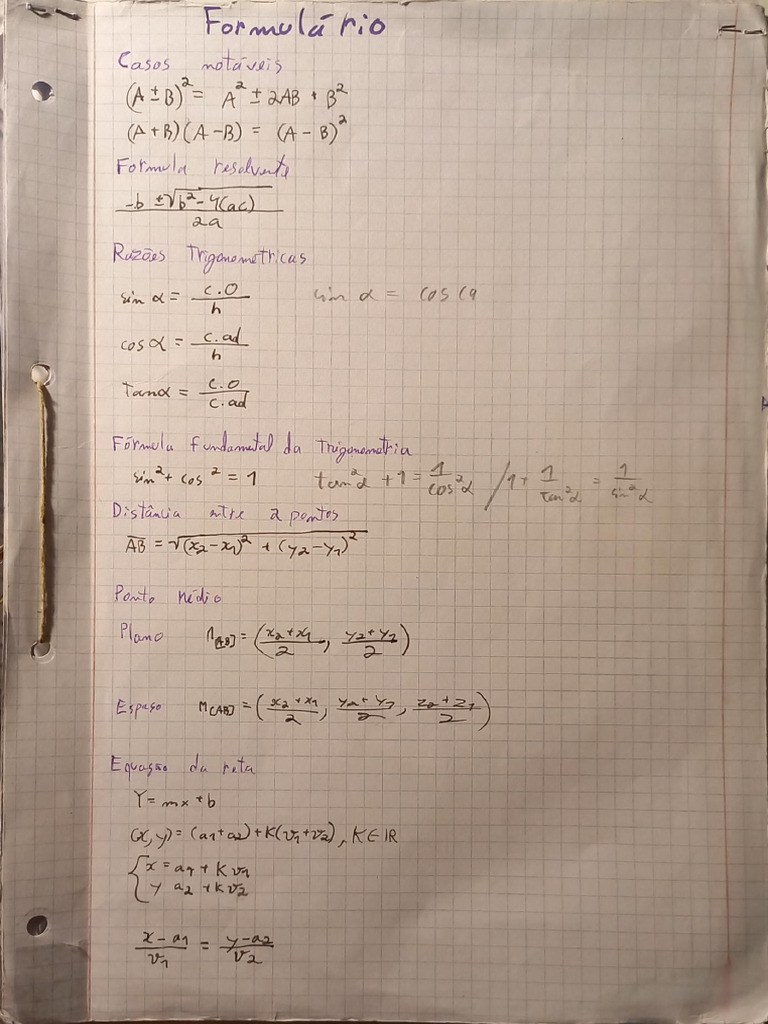 Formulário
Casos notáveis
(A ± B)² = A² ± 2AB + B²
(A + B)(A - B) = (A - B)²
Formula resolvente
-b ± √b² - 4(ac)
2a
Razões Trigonometricas
sin α = c.o / h    sin α = cos (9
cos α = c.ad / h
Tan α = c.o / c.ad
Fórmula fundamental da Trigonometria
sin² + cos² = 1    tan²α + 1 = 1 / cos²α / 1 + 1 / Tan²α = 1 / sin²α
Distância entre 2 pontos
AB = √(x₂ - x₁)² + (y₂ - y₁)²
Ponto Médio
Plano    M[AB] = (x₂ + x₁ / 2, y₂ + y₁ / 2)
Espaço    M[AB] = (x₂ + x₁ / 2, y₂ + y₁ / 2, z₂ + z₁ / 2)
Equação da reta
Y = mx + b
(x, y) = (a₁ + a₂) + K(v₁ + v₂), K ∈ IR
{ x = a₁ + K v₁
y a₂ + K v₂
x - a₁ / v₁ = y - a₂ / v₂